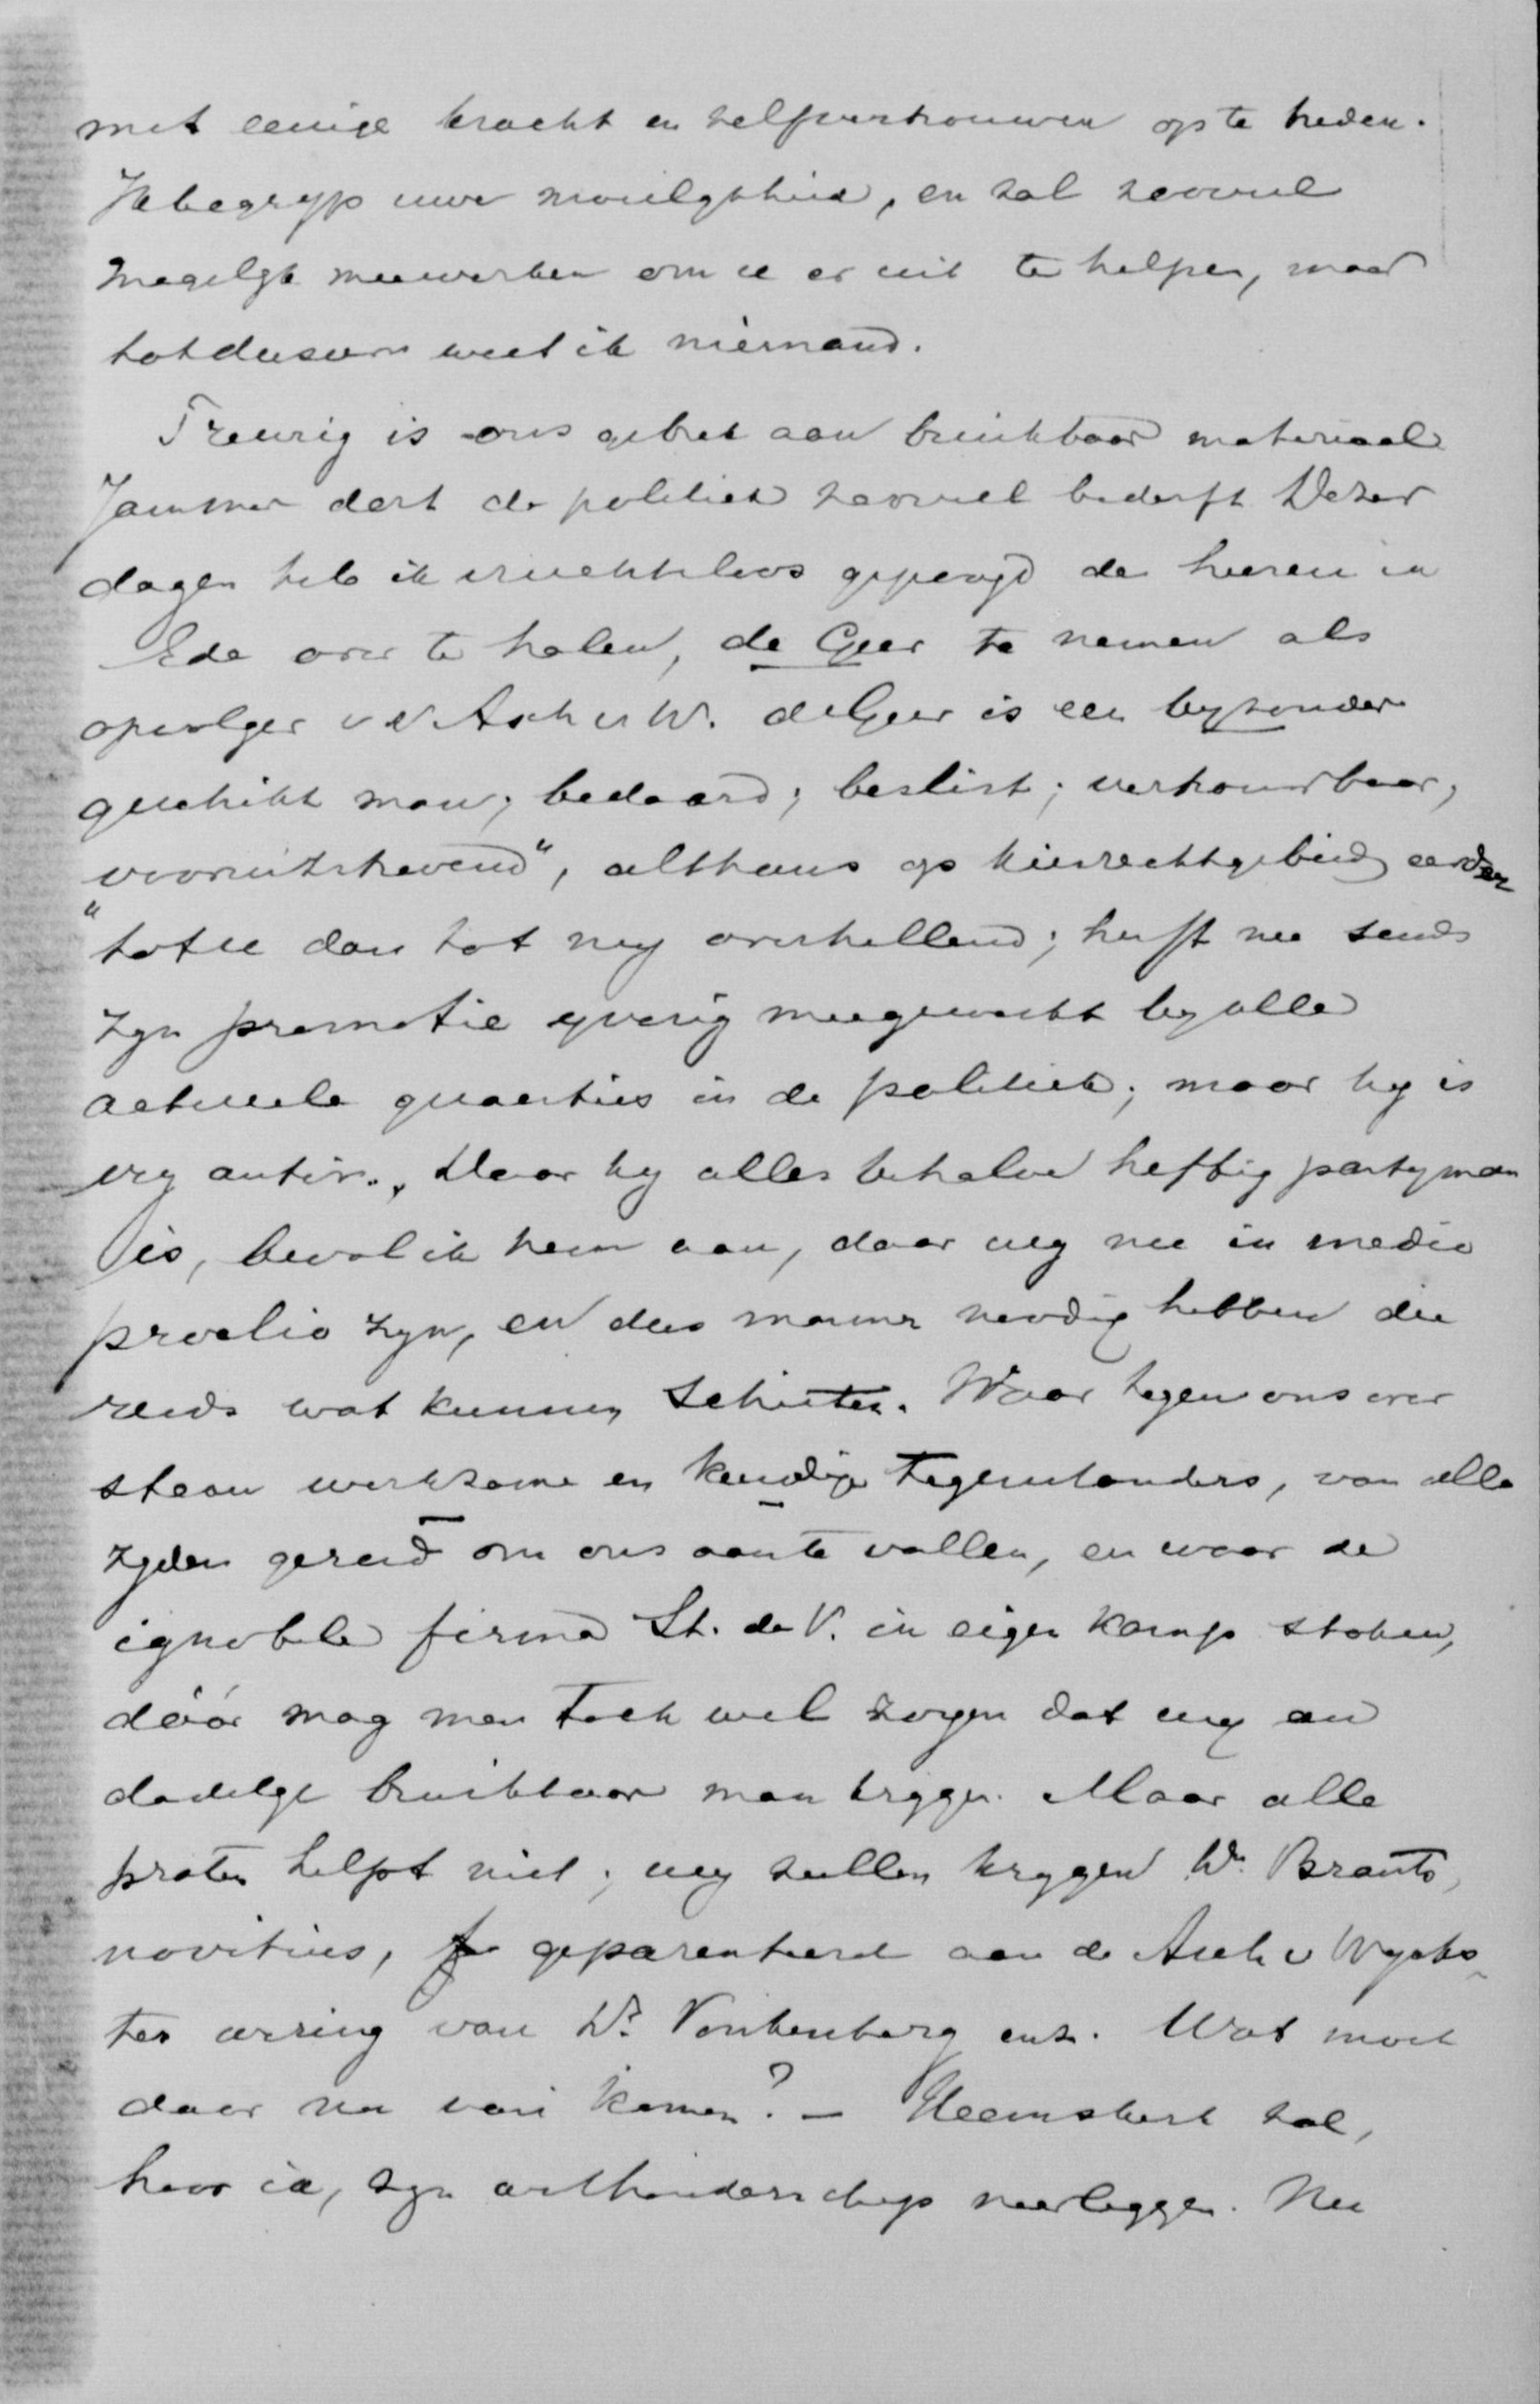 met eenige kracht en zelfvertrouwen op te treden.
Ik begryp uwe moeilykheid, en zal zooveel
mogelyk meewerken om u er uit te helpen, maar
totdusver weet ik niemand.
Treurig is ons gebrek aan bruikbaar materiaal
Jammer dat de politiek zooveel bederft Dezer
dagen heb ik vruchteloos gepoogd de heeren in
Ede over te halen, de Geer te nemen als
opvolger v d Asch v W. de Geer is een byzonder
geschikt man; bedaard; beslist; vertrouwbaar,
"vooruitstrevend", althans op kiesrechtgebied eerder
tot u dan tot my overhellend; heeft nu sends
zyn promotie yverig meegewerkt by alle
actueele quaesties in de politiek; maar hy is
vry antir., Daar hy alles behalve heftig partyman
is, beval ik hem aan, daar wy nu in medio
proelio zyn, en dus mannen noodig hebben die
reeds wat kunnen schieten. Waar tegen ons over
staan werkzame en kundige tegenstanders, van alle
zyden gereed om ons aan te vallen, en waar de
ignobele firma St. de V. in eigen kamp stoken,
dáár mag men toch wel zorgen dat wy een
dadelyk bruikbaar man krygen. Maar alle
praten helpt niet; wy zullen krygen Dr. Brants,
novitius, geparenteerd aan de Asch v Wycks
ter eering van Dr. Vonkenberg enz. Wat moet
daar nu van komen? – Heemskerk zal,
hoor ik, zyn wethouderschap neerleggen. Nu